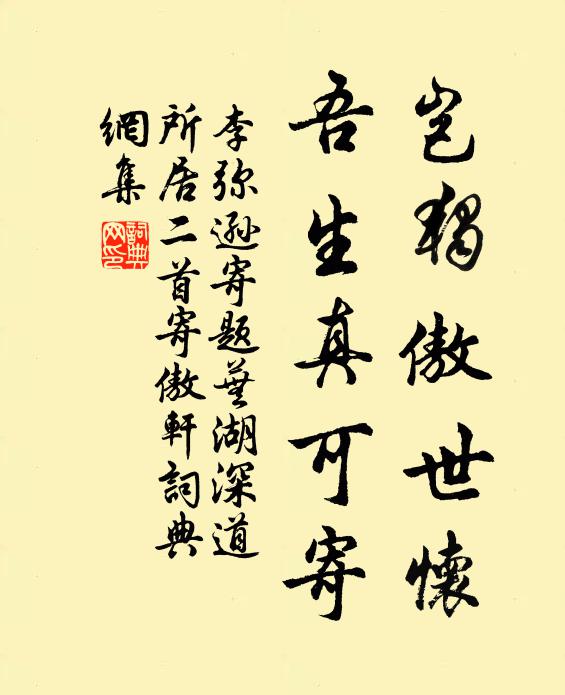 岂独傲世怀
吾生真可寄
李弥逊寄题芜湖深道
所居二首寄傲轩词典
網集
詞典
网印